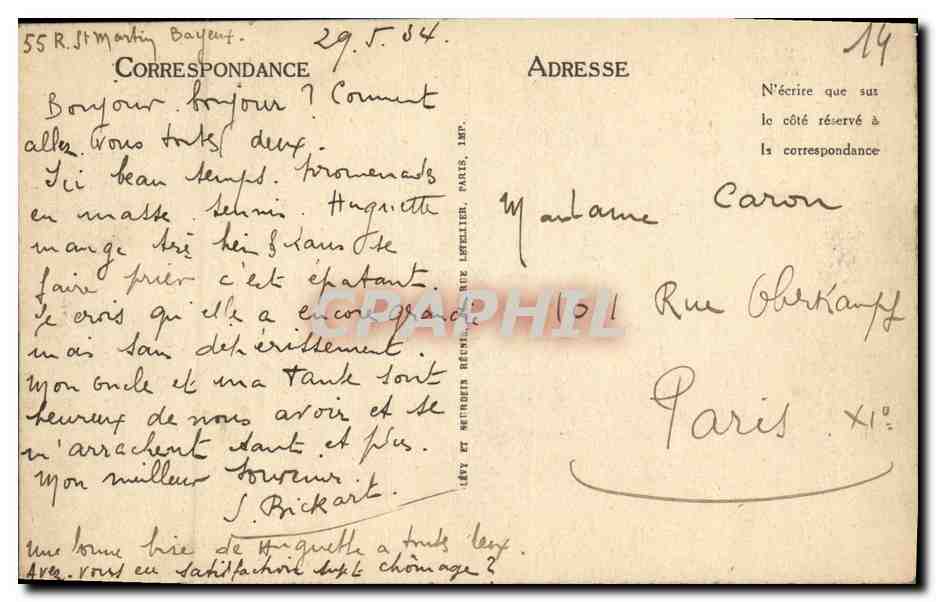 55 R. St Martin Bayeux.
29.5.34.
14
CORRESPONDANCE
ADRESSE
N'écrire que sur
le côté réservé à
la correspondance
Bonjour. bonjour? Comment
allez. Vous toutes deux.
Ici beau temps. Promenades
en masse. tennis. Huguette
mange très bien & sans se
faire prier c'est épatant.
Je crois qu'elle a encore grandi
mais sans
Mon oncle et ma tante sont
heureux de nous avoir et se
m'arrachent tant et plus.
Mon meilleur souvenir.
S. Bickart.
une bonne bise de Huguette a toutes deux.
Avez-vous eu satisfaction chômage?
Madame Caron
101 Rue Oberkampf
Paris XIº
LÉVY ET NEURDEIN RÉUNIS, RUE LETELLIER, PARIS, IMP.
CPAPHIL